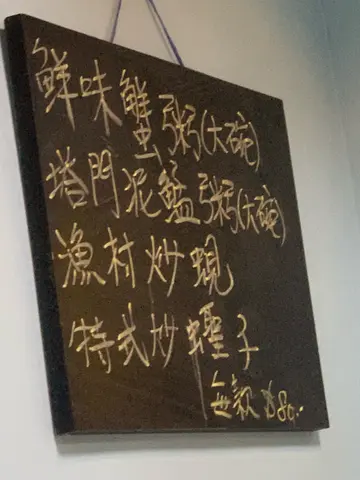 鮮味蟹粥(大碗)
塔門泥鯭粥(大碗)
漁村炒蜆
特式炒蟶子
每款$80.-